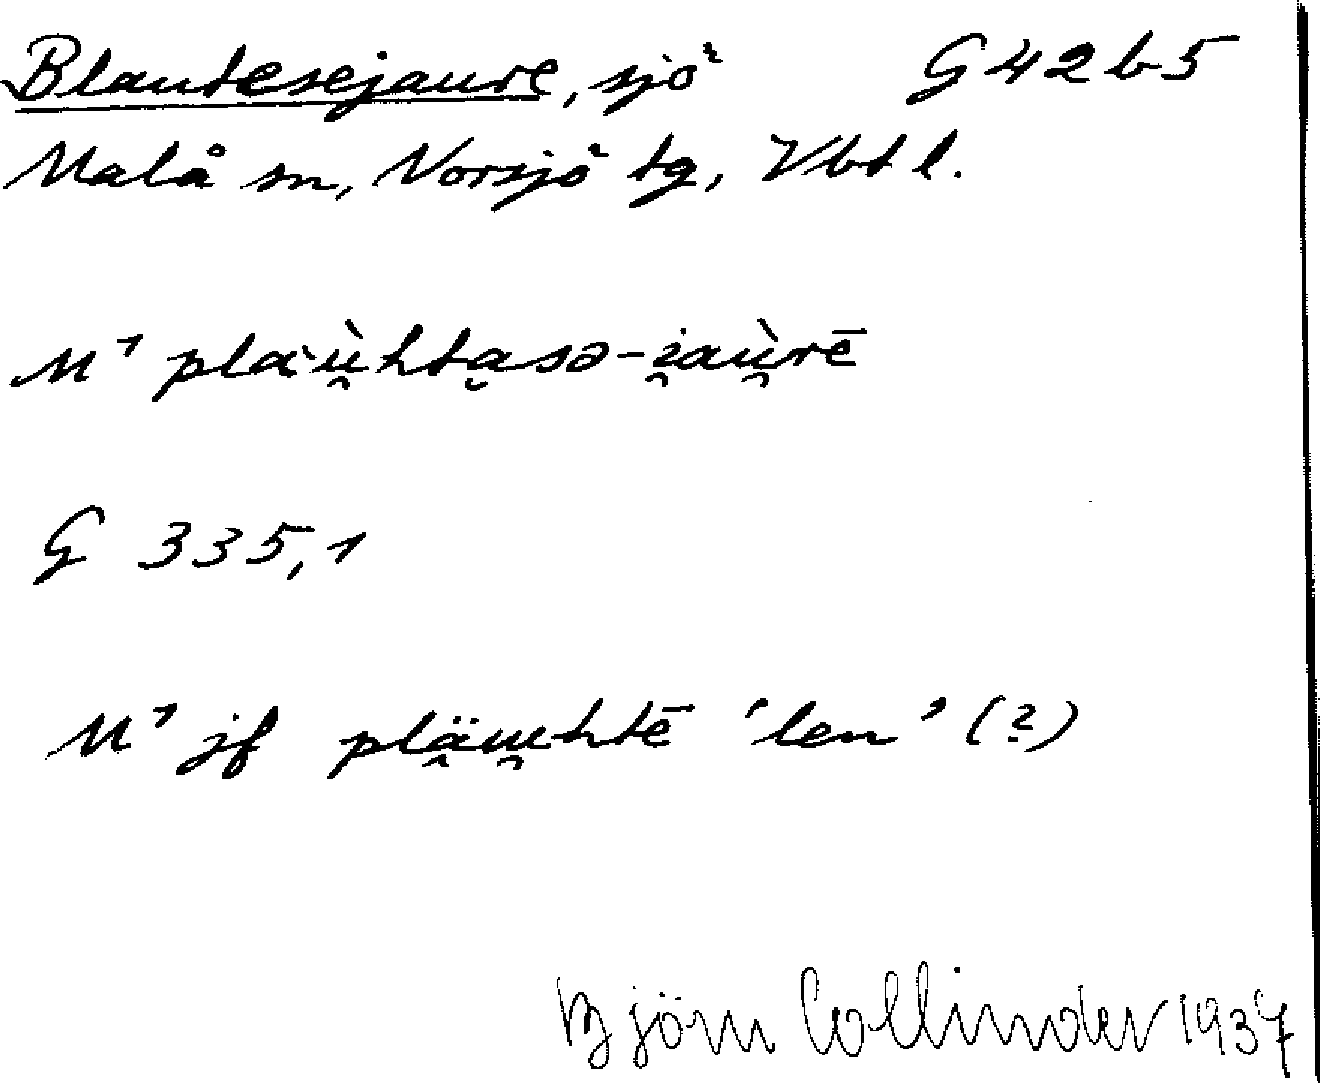 Blautesejaure, sjö G42b5
Malå sn, Norsjö tg, Vbt l.
M¹ pla`ù̯htạsə-i̯aù̯rē
G 335,1
M¹ jf plä̯u̯htē 'len' (?)
Björn Collinder 1937